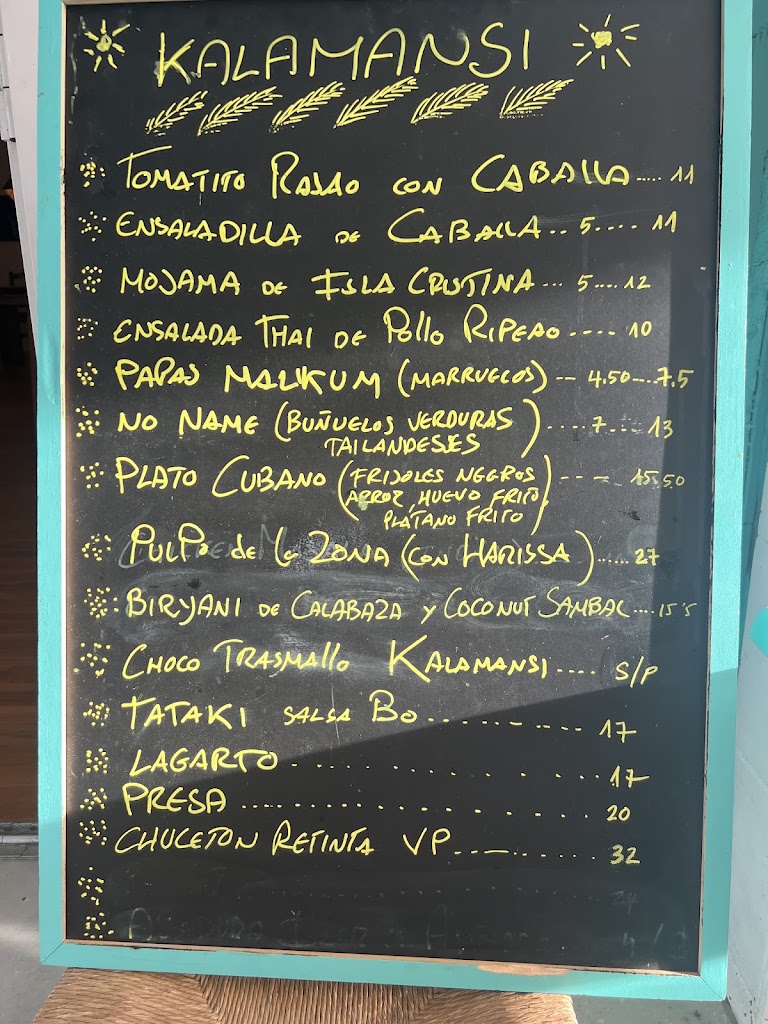 KALAMANSI
TOMATITO RAJAO CON CABALLA..... 11
ENSALADILLA DE CABALLA.. 5.... 11
MOJAMA DE ISLA CRISTINA... 5.... 12
ENSALADA THAI DE POLLO RIPEAO.... 10
PAPAS MALIKUM (MARRUECOS) -- 4.50...7.5
NO NAME (BUÑUELOS VERDURAS
TAILANDESES) .... 7.... 13
PLATO CUBANO (FRIJOLES NEGROS
ARROZ, HUEVO FRITO,
PLÁTANO FRITO) --- 15.50
PULPO de la ZONA (CON HARISSA)..... 27
BIRYANI DE CALABAZA Y COCONUT SAMBAL.... 15'5
CHOCO TRASMALLO KALAMANSI.... S/P
TATAKI SALSA BO......... 17
LAGARTO ......... 17
PRESA ............ 20
CHULETON RETINTA VP......... 32
24